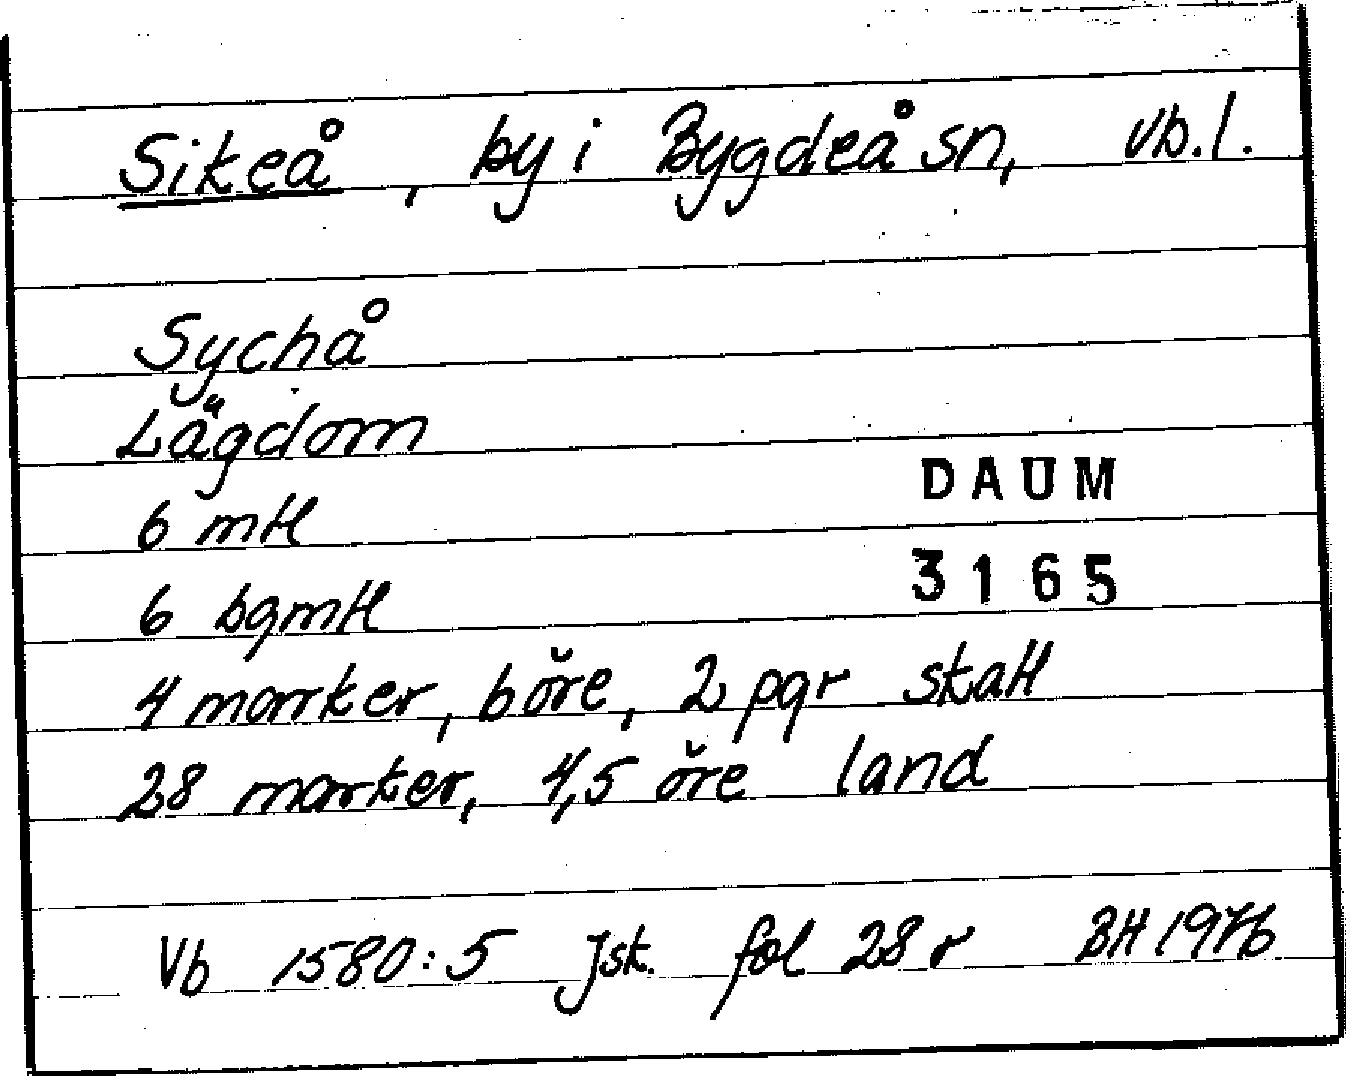 Sikeå, by i Bygdeå sn, Vb.l.
Sychå
Lägdom
6 mtl
DAUM
6 bgmtl
3165
4 marker, 6 öre, 2 pgr skatt
28 marker, 4,5 öre land
Vb 1580:5 Jsk. fol 28 r BH 1976